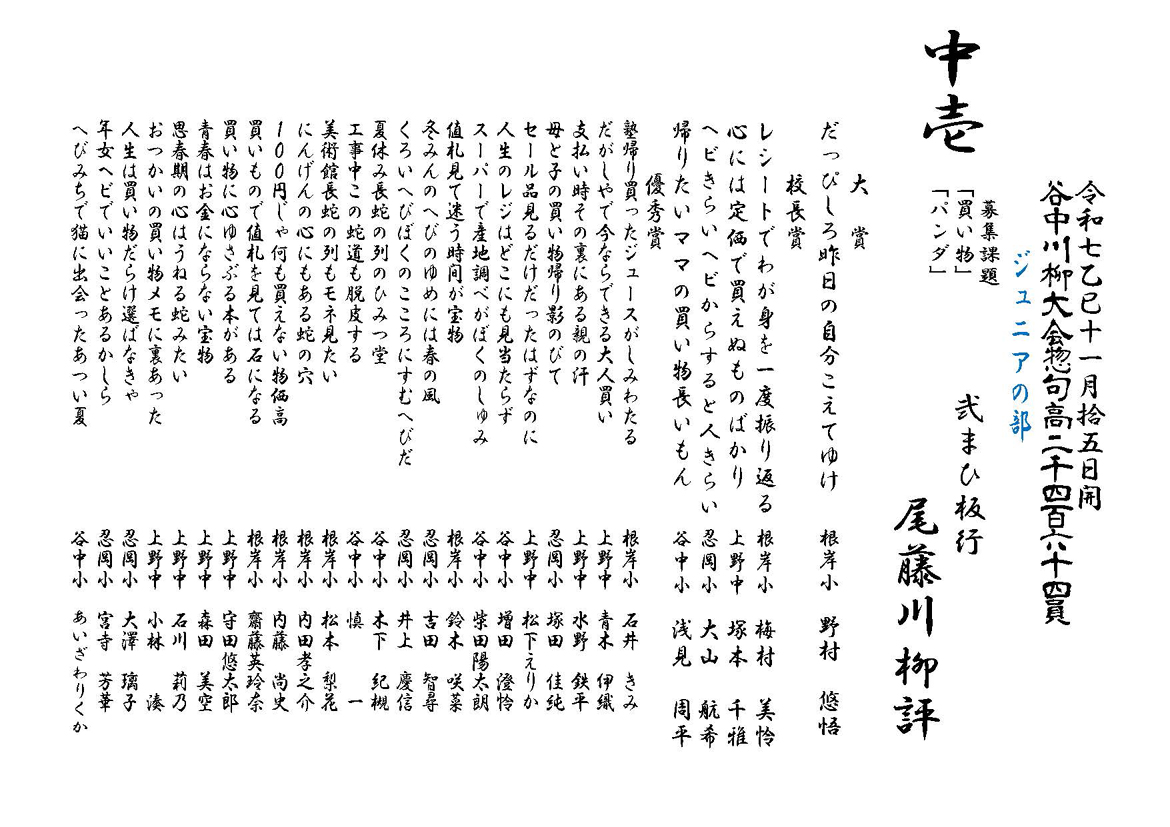 令和七乙巳十一月拾五日開
谷中川柳大会惣句高二千四百六十四員
ジュニアの部
募集課題
「買い物」
「パンダ」
弐まひ板行
中壱
尾藤川柳評
大賞
だっぴしろ昨日の自分こえてゆけ 根岸小 野村 悠悟
校長賞
レシートでわが身を一度振り返る 根岸小 梅村 美怜
心には定価で買えぬものばかり 上野中 塚本 千雅
ヘビきらいヘビからすると人きらい 忍岡小 大山 航希
帰りたいママの買い物長いもん 谷中小 浅見 周平
優秀賞
塾帰り買ったジュースがしみわたる 根岸小 石井 きみ
だがしやで今ならできる大人買い 上野中 青木 伊織
支払い時その裏にある親の汗 上野中 水野 鉄平
母と子の買い物帰り影のびて 忍岡小 塚田 佳純
セール品見るだけだったはずなのに 上野中 松下えりか
人生のレジはどこにも見当たらず 谷中小 増田 澄怜
スーパーで産地調べがぼくのしゅみ 谷中小 柴田陽太朗
値札見て迷う時間が宝物 根岸小 鈴木 咲菜
冬みんのへびのゆめには春の風 忍岡小 吉田 智尋
くろいへびぼくのこころにすむへびだ 忍岡小 井上 慶信
夏休み長蛇の列のひみつ堂 谷中小 木下 紀槻
工事中この蛇道も脱皮する 谷中小 慎 一
美術館長蛇の列もモネ見たい 根岸小 松本 梨花
にんげんの心にもある蛇の穴 根岸小 内田孝之介
100円じゃ何も買えない物価高 根岸小 内藤 尚史
買いもので値札を見ては石になる 根岸小 齋藤英玲奈
買い物に心ゆさぶる本がある 上野中 守田悠太郎
青春はお金にならない宝物 上野中 森田 美空
思春期の心はうねる蛇みたい 上野中 石川 莉乃
おつかいの買い物メモに裏あった 上野中 小林 湊
人生は買い物だらけ選ばなきゃ 忍岡小 大澤 璃子
年女ヘビでいいことあるかしら 忍岡小 宮寺 芳華
へびみちで猫に出会ったあつい夏 谷中小 あいざわりくか